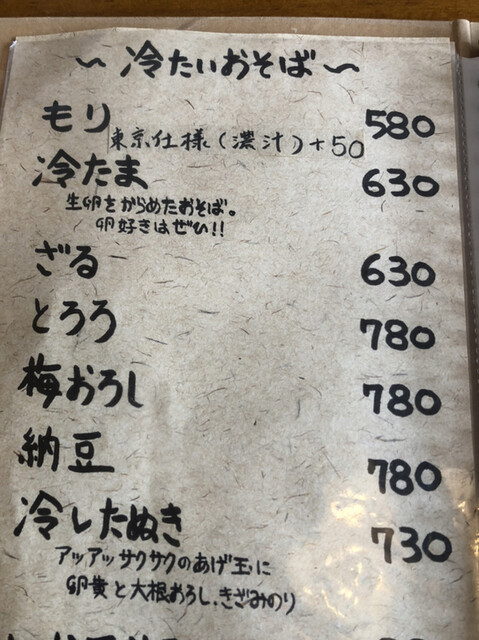 ～ 冷たいおそば ～
もり 580
東京仕様(濃汁)+50
冷たま 630
生卵をからめたおそば。
卵好きはぜひ!!
ざる 630
とろろ 780
梅おろし 780
納豆 780
冷したぬき 730
アツアツサクサクのあげ玉に
卵黄と大根おろし、きざみのり